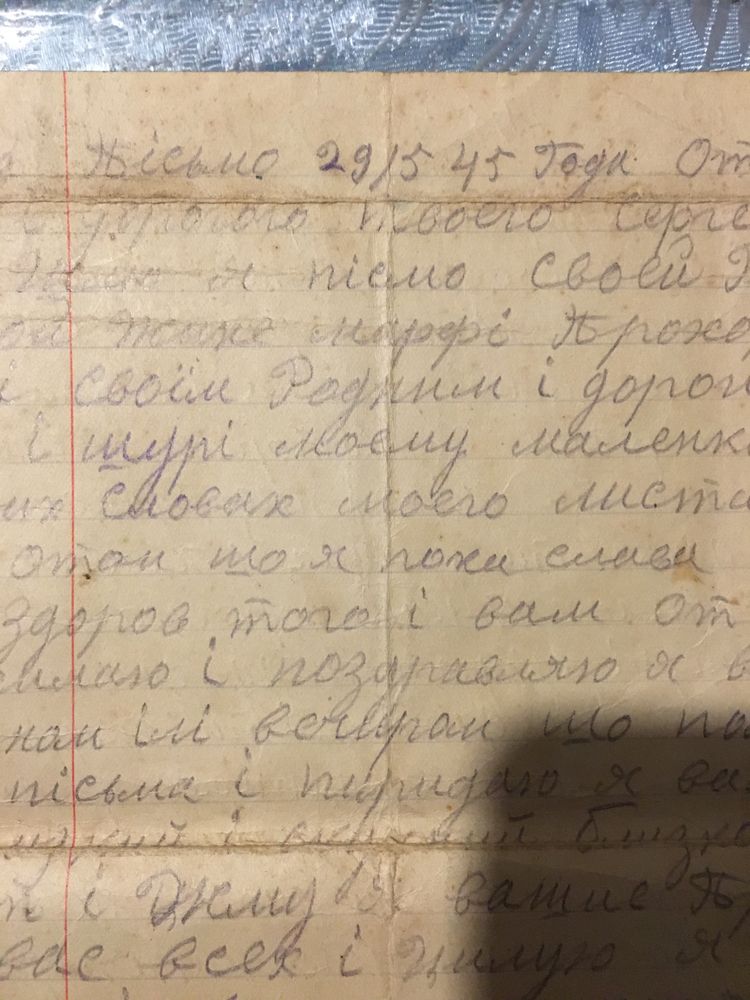 Пісьмо 29/5 45 Года От
і дорогого твоего Серге
я пісмо своей
ой жене марфі Прохо
і своїм Родним і дорог
і шурі моєму маленк
их словах моего листа
отом шо я пока слава
здоров того і вам от
силаю і поздравляю я в
ілі вечиром шо
пісьма і пиридаю я ва
і близк
і Дкму я ваше Пр
вас всех і цилую я